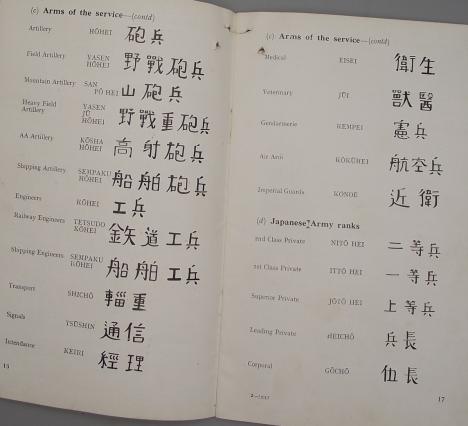 (c) Arms of the service—(contd)
Artillery HŌHEI 砲兵
Field Artillery YASEN HŌHEI 野戰砲兵
Mountain Artillery SAN PŌ HEI 山砲兵
Heavy Field Artillery YASEN JŪ HŌHEI 野戰重砲兵
AA Artillery KŌSHA HŌHEI 高射砲兵
Shipping Artillery SEMPAKU HŌHEI 船舶砲兵
Engineers KŌHEI 工兵
Railway Engineers TETSUDO KŌHEI 鉄道工兵
Shipping Engineers SEMPAKU KŌHEI 船舶工兵
Transport SHICHŌ 輜重
Signals TSŪSHIN 通信
Intendance KEIRI 經理
(c) Arms of the service—(contd)
Medical EISEI 衛生
Veterinary JŪI 獸醫
Gendarmerie KEMPEI 憲兵
Air Arm KŌKŪHEI 航空兵
Imperial Guards KONOE 近衛
(d) Japanese Army ranks
2nd Class Private NITŌ HEI 二等兵
1st Class Private ITTŌ HEI 一等兵
Superior Private JŌTŌ HEI 上等兵
Leading Private HEICHŌ 兵長
Corporal GŌCHŌ 伍長
17